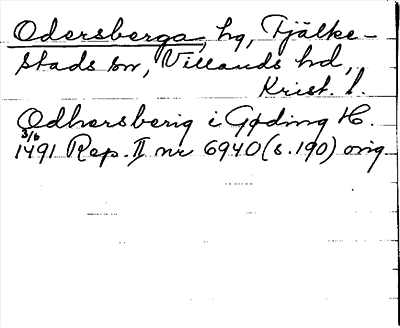 Odersberga, hg, Tjälke-
stads sn, Villands hd,
Krist. l.
Odhersberig i Gøding H.
3/6
1491 Rep. II nr 6940 (s. 190) orig